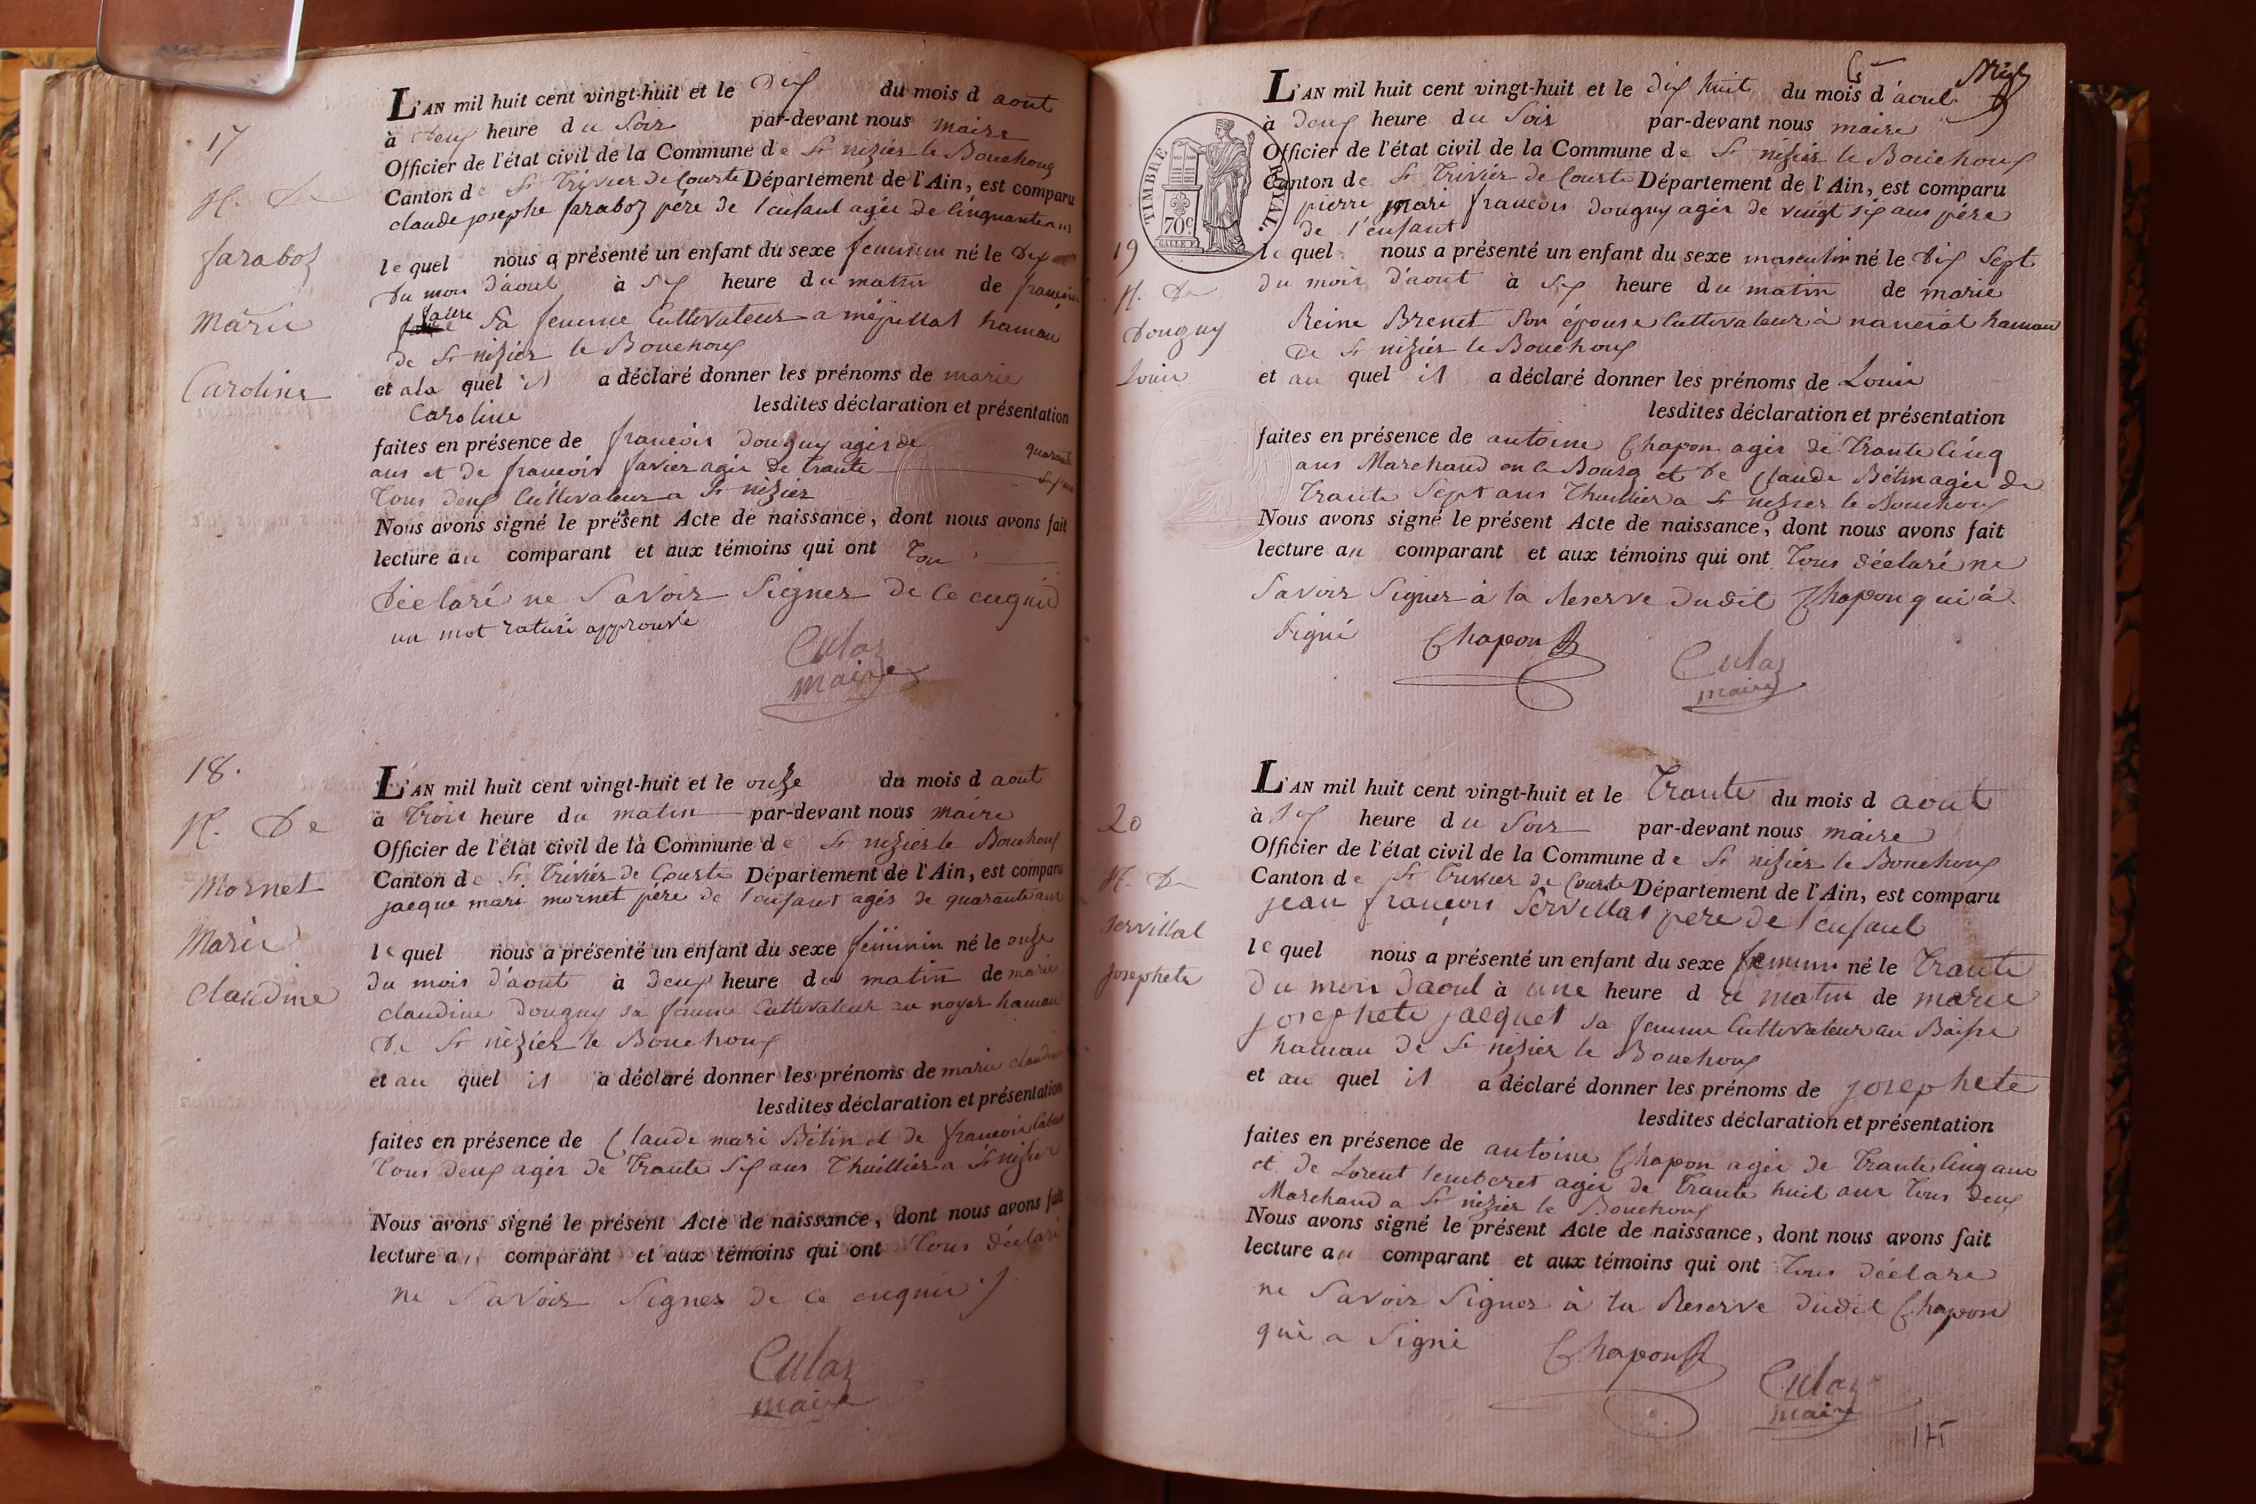 17
N. De
faraboz
Marie
Caroline
L'AN mil huit cent vingt-huit et le dix du mois d aout
à deux heure du Soir par-devant nous maire
Officier de l'état civil de la Commune de St nizier le Bouchoux
Canton de St Trivier de Courte Département de l'Ain, est comparu
claude josephe faraboz pére de l'enfant agée de Cinquante ans
lequel nous a présenté un enfant du sexe feminin né le dix
du mois d'aout à six heure du matin de françoise
faure sa femme Cultivateur a mézillat hamau
de St nizier le Bouchoux
et ala quel il a déclaré donner les prénoms de marie
Caroline lesdites déclaration et présentation
faites en présence de françois douguy agér de quarante
ans et de françois favier agée de trante six ans
Tous deux Cultivateur a St nizier
Nous avons signé le présent Acte de naissance, dont nous avons fait
lecture au comparant et aux témoins qui ont Tou
déclaré ne Savoir Signer de ce enquis
un mot raturé approuvé
Culaz
maire
18.
N. De
Mornet
Marie
claudine
L'AN mil huit cent vingt-huit et le onze du mois d aout
à trois heure du matin par-devant nous maire
Officier de l'état civil de la Commune de St nizier le Bouchoux
Canton de St Trivier de Courte Département de l'Ain, est comparu
jacque mari mornet pére de l'enfant agés de quarante ans
lequel nous a présenté un enfant du sexe féminin né le onze
du mois d'aout à deux heure du matin de marie
claudine douguy sa femme Cultivateur au noyer hamau
De St nizier le Bouchoux
et au quel il a déclaré donner les prénoms de marie claudine
lesdites déclaration et présentation
faites en présence de Claude mari Bétin et de françois
Tous deux agér de trante six ans Thuillier a St nizier
Nous avons signé le présent Acte de naissance, dont nous avons fait
lecture au comparant et aux témoins qui ont Tous déclaré
ne Savoir Signer de ce enquis
Culaz
maire
TIMBRE ROYAL.
70c
19
N. De
Douguy
Louis
L'AN mil huit cent vingt-huit et le dix huit du mois d'aout
à deux heure du Soir par-devant nous maire
Officier de l'état civil de la Commune de St nizier le Bouchoux
Canton de St Trivier de Courte Département de l'Ain, est comparu
pierre mari francois douguy agér de vingt six ans pére
de l'enfant
lequel nous a présenté un enfant du sexe masculin né le dix Sept
du mois d'aout à six heure du matin de marie
Reine Brenet Son épouse Cultivateur à nancrat hamau
de St nizier le Bouchoux
et au quel il a déclaré donner les prénoms de Louis
lesdites déclaration et présentation
faites en présence de antoine Chapon agér de Trante Cinq
ans Marchand en le Bourg et De Claude Bétin agée de
trante Sept ans Thuillier a St nizier le Bouchoux
Nous avons signé le présent Acte de naissance, dont nous avons fait
lecture au comparant et aux témoins qui ont Tous déclaré ne
Savoir Signer à la Reserve dudit Chapon qui à
Signé Chapon
Culaz
maire
20
N. De
Servillat
Josephete
L'AN mil huit cent vingt-huit et le Trante du mois d aout
à six heure du Soir par-devant nous maire
Officier de l'état civil de la Commune de St nizier le Bouchoux
Canton de St Trivier de Courte Département de l'Ain, est comparu
jean françois Servillat pere de l'enfant
lequel nous a présenté un enfant du sexe feminin né le Trante
du mois daout à une heure du matin de marie
josephete jacquet sa femme Cultivateur au
hamau de St nizier le Bouchoux
et au quel il a déclaré donner les prénoms de josephete
lesdites déclaration et présentation
faites en présence de antoine Chapon agée de trante Cinq ans
et de Lorent agée de trante huit ans Tous deux
Marchand a St nizier le Bouchoux
Nous avons signé le présent Acte de naissance, dont nous avons fait
lecture au comparant et aux témoins qui ont Tous déclaré
ne Savoir Signer à la Reserve dudit Chapon
qui a Signé Chapon
Culaz
maire